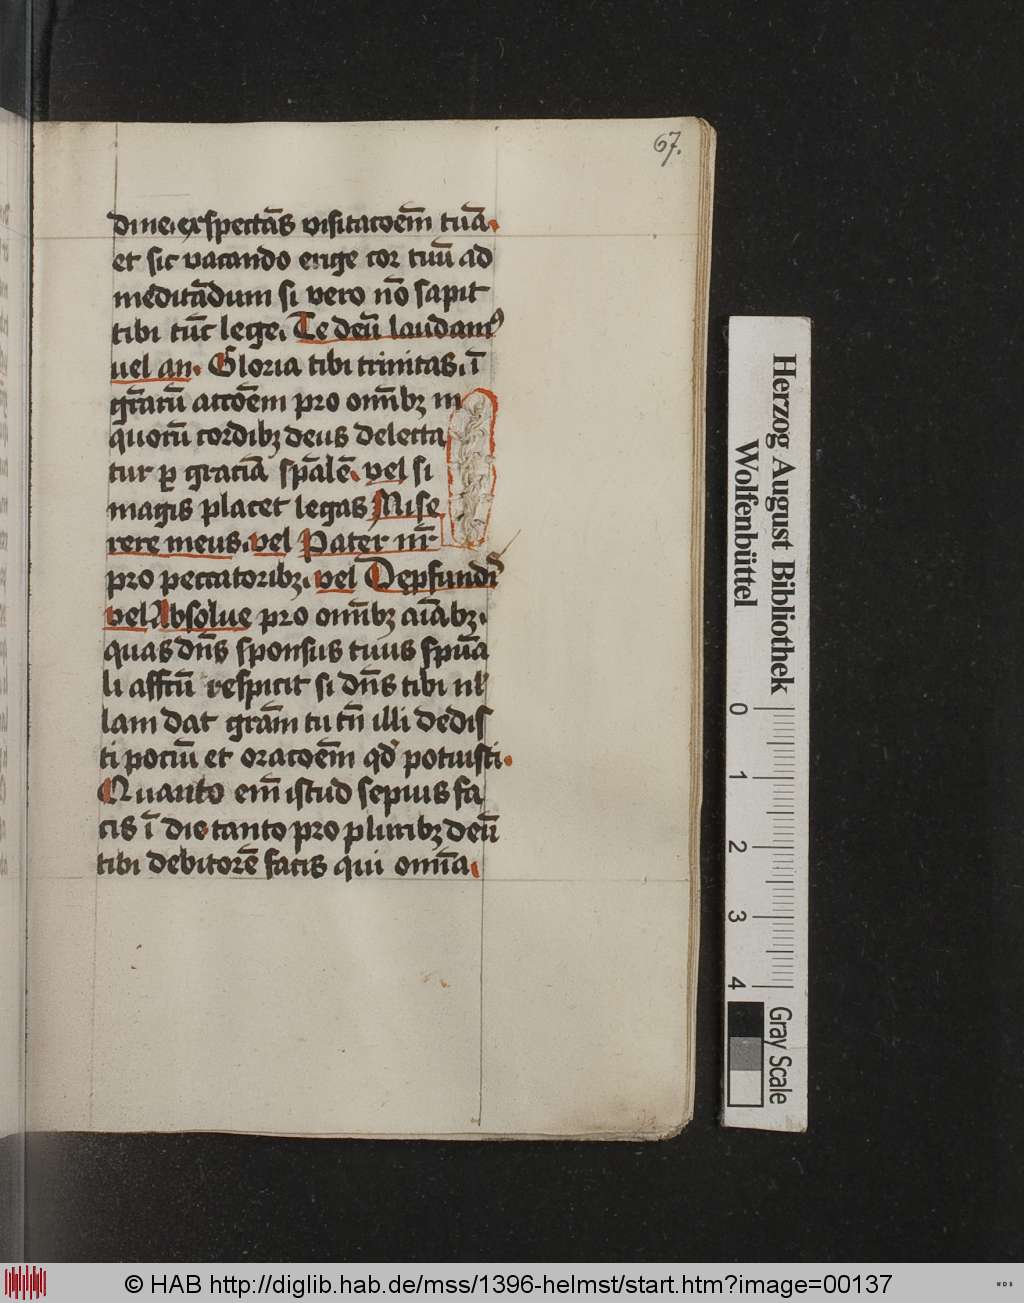 67.
dine. exspectās visitacōem̄ tuā.
et sic vacando erige cor tuū ad
meditādum si vero nō sapit
tibi tūc lege. Te deū laudamꝰ
uel an. Gloria tibi trinitas. ī
gr̄arū accōem pro om̄ibꝫ in
quorū cordibꝫ deus delecta
tur ꝑ graciā sp̄alē. vel si
magis placet legas Mise
rere meus. vel Pater nr̄
pro peccatoribꝫ. vel
vel Absolue pro om̄ibꝫ aīabꝫ.
quas dn̄s sponsus tuus sp̄ua
li affcū respicit si dn̄s tibi ul
lam dat grām tu tn̄ illi dedis
ti pociū et oracōem̄ qd̄ potuisti.
Quanto em̄ istud sepius fa
cis ī die tanto pro pluribꝫ deū
tibi debitorē facis qui om̄ia.
Herzog August Bibliothek
Wolfenbüttel
0 1 2 3 4
Gray Scale
© HAB http://diglib.hab.de/mss/1396-helmst/start.htm?image=00137
WDB